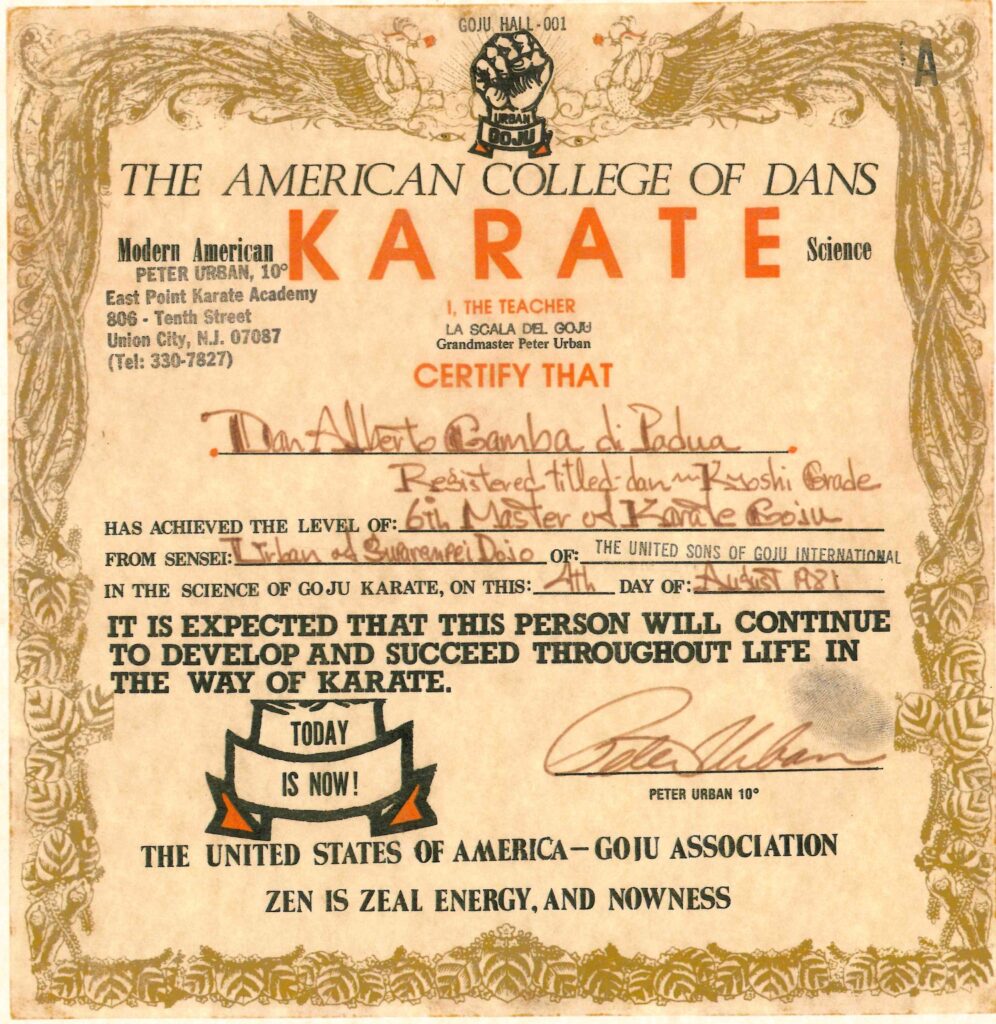 GOJU HALL-001
A
URBAN
GOJU
THE AMERICAN COLLEGE OF DANS
Modern American KARATE Science
PETER URBAN, 10°
East Point Karate Academy
806 - Tenth Street
Union City, N.J. 07087
(Tel: 330-7827)
I, THE TEACHER
LA SCALA DEL GOJU
Grandmaster Peter Urban
CERTIFY THAT
Dan Alberto Gamba di Padua
Registered titled-dan Kyoshi Grade
HAS ACHIEVED THE LEVEL OF: 6th Master of Karate Goju
FROM SENSEI: Urban of Suparenpei Dojo OF: THE UNITED SONS OF GOJU INTERNATIONAL
IN THE SCIENCE OF GOJU KARATE, ON THIS: 4th DAY OF: August 1981
IT IS EXPECTED THAT THIS PERSON WILL CONTINUE
TO DEVELOP AND SUCCEED THROUGHOUT LIFE IN
THE WAY OF KARATE.
TODAY
IS NOW!
Peter Urban
PETER URBAN 10°
THE UNITED STATES OF AMERICA—GOJU ASSOCIATION
ZEN IS ZEAL ENERGY, AND NOWNESS